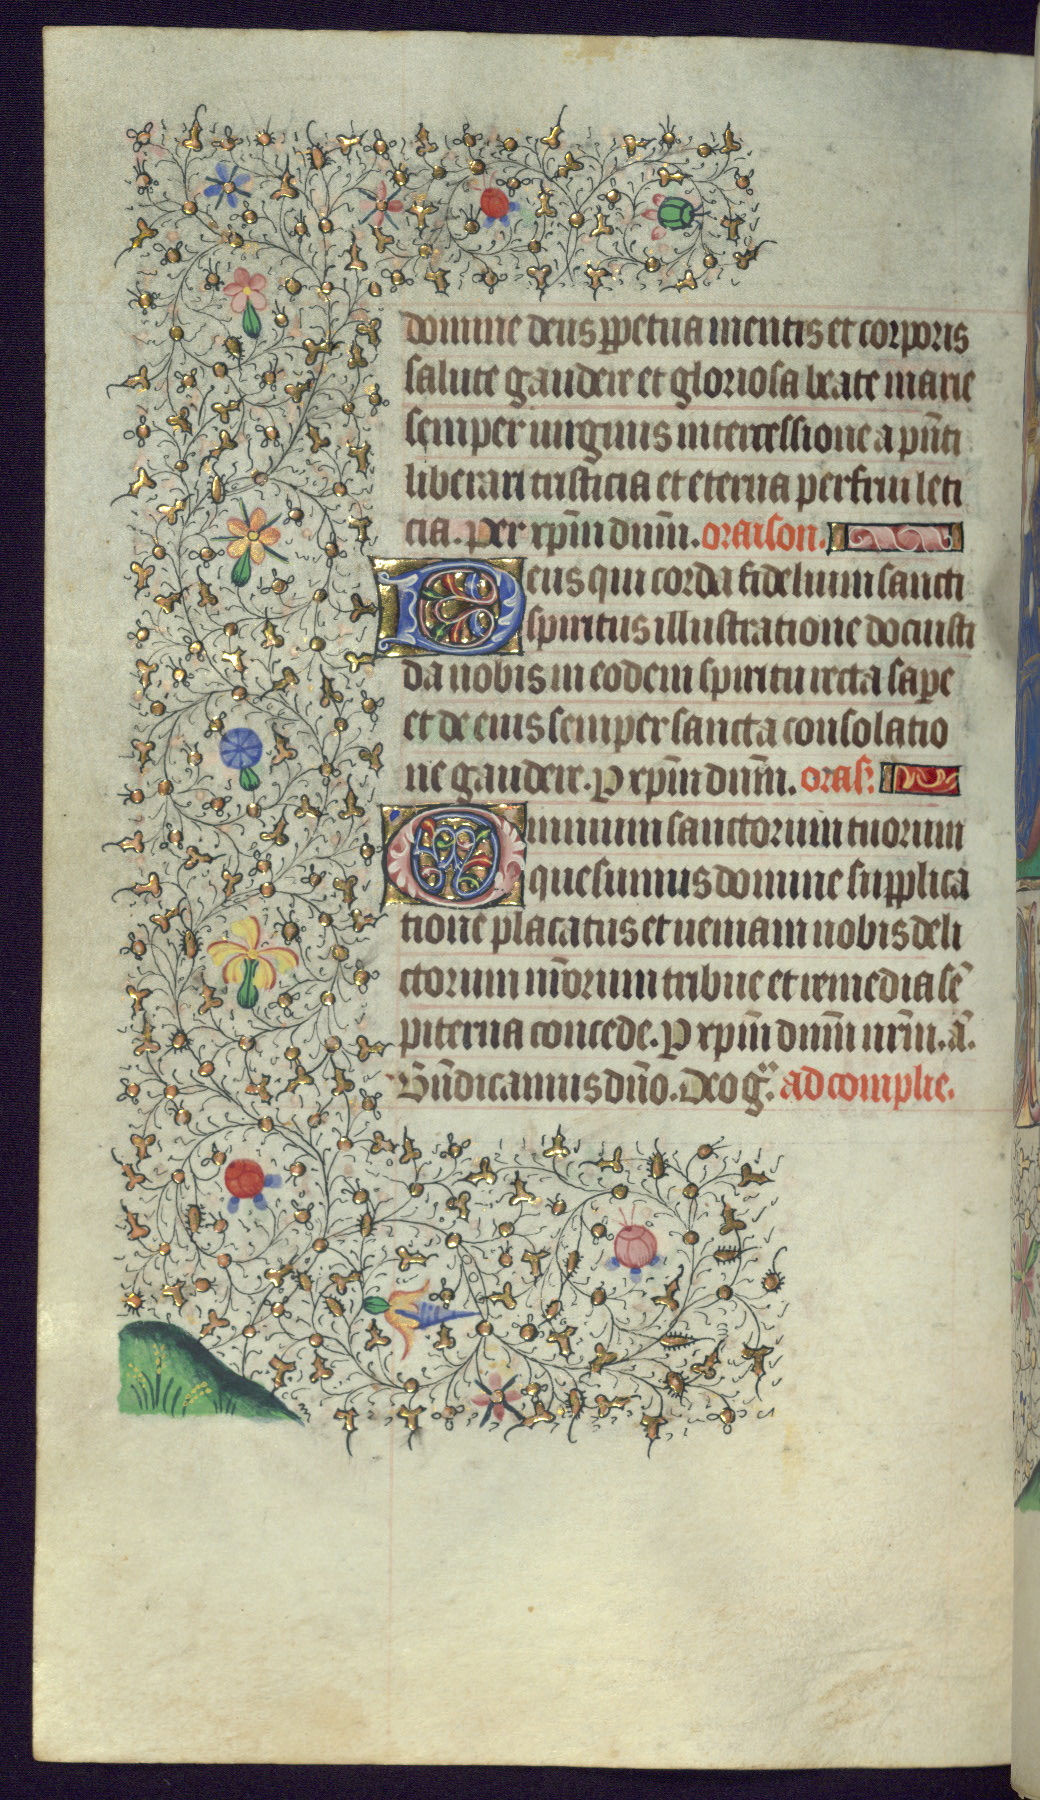 domine deus ꝑpetua mentis et corporis
salute gaudere et gloriosa beate marie
semper uirginis intercessione a pn̄ti
liberari tristicia et eterna perfrui leti
cia. Per xp̄m dnm̄. oraison.
Deus qui corda fidelium sancti
spiritus illustratione docuisti
da nobis in eodem spiritu recta saꝑe
et de eius semper sancta consolatio
ne gaudere. P xp̄m dnm̄. oraſ.
Omnium sanctorum tuorum
quesumus domine supplica
tione placatus et ueniam nobis deli
ctorum nr̄orum tribue et remedia sē
piterna concede. P xp̄m dnm̄ nrm̄. am̄.
Bn̄dicamus dn̄o. Deo gr̄. ad complie.